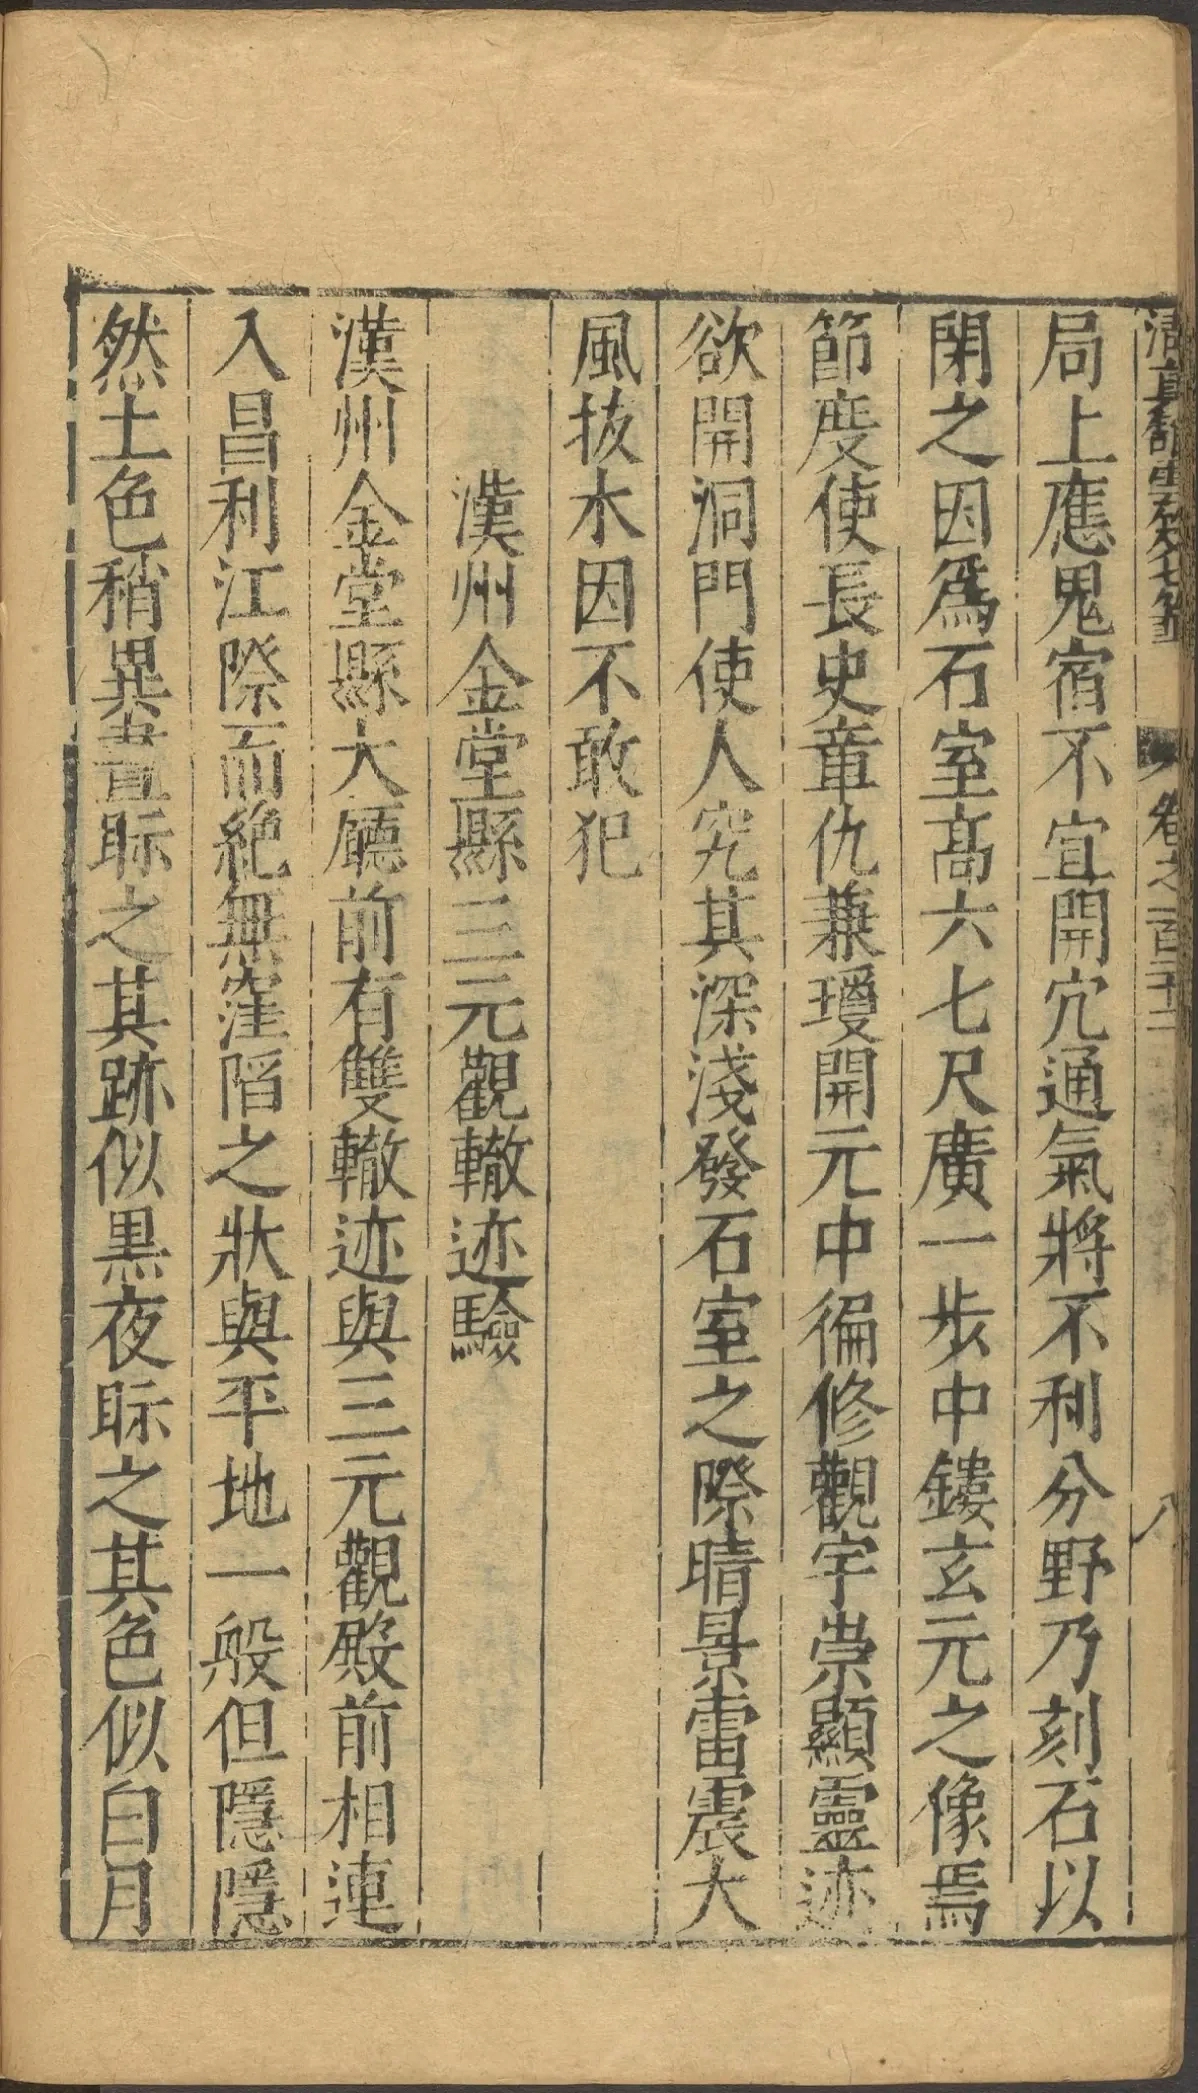 清真館雲笈七籤 卷之一百二十二 八
局上應鬼宿不宜開穴通氣將不利分野乃刻石以
閉之因爲石室高六七尺廣一步中鏤玄元之像焉
節度使長史章仇兼瓊開元中徧修觀宇崇顯靈迹
欲開洞門使人究其深淺發石室之際晴景雷震大
風拔木因不敢犯
漢州金堂縣三元觀轍迹驗
漢州金堂縣大廳前有雙轍迹與三元觀殿前相連
入昌利江際而絶無窪陷之狀與平地一般但隱隱
然土色稍異晝眎之其跡似黒夜眎之其色似白月